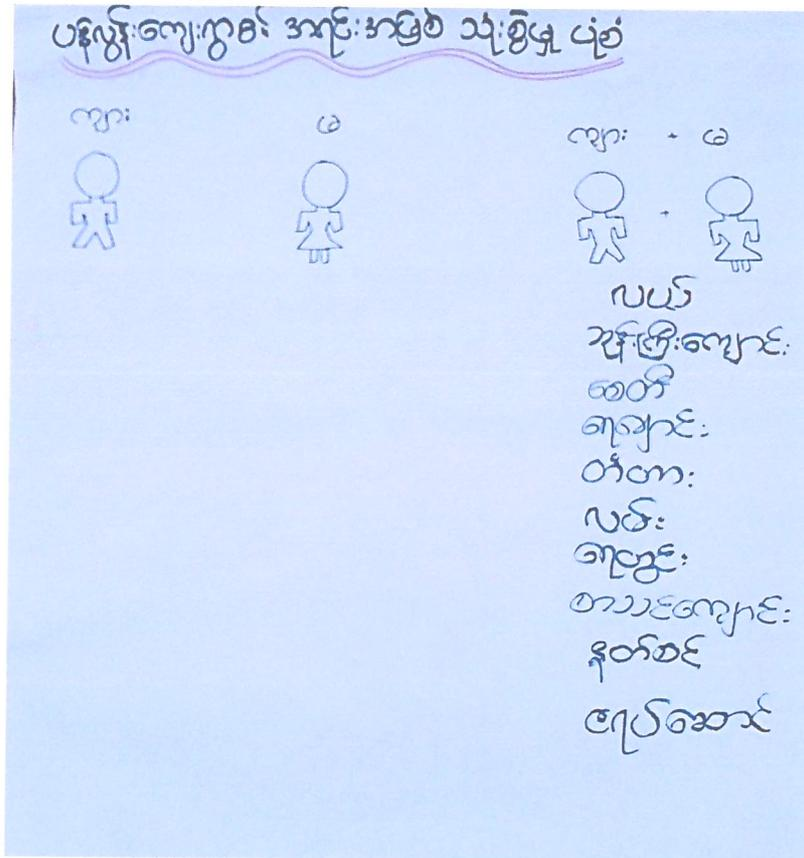 ပန်လွန်းကျေးရွာ၏ အရင်းအမြစ် သုံးစွဲမှု ပုံစံ
ကျား
မ
ကျား - မ
လယ်
ဘုန်းကြီးကျောင်း
စေတီ
ရေချောင်း
တံတား
လမ်း
ရေတွင်း
စာသင်ကျောင်း
နတ်စင်
ဇရပ်ဆောင်